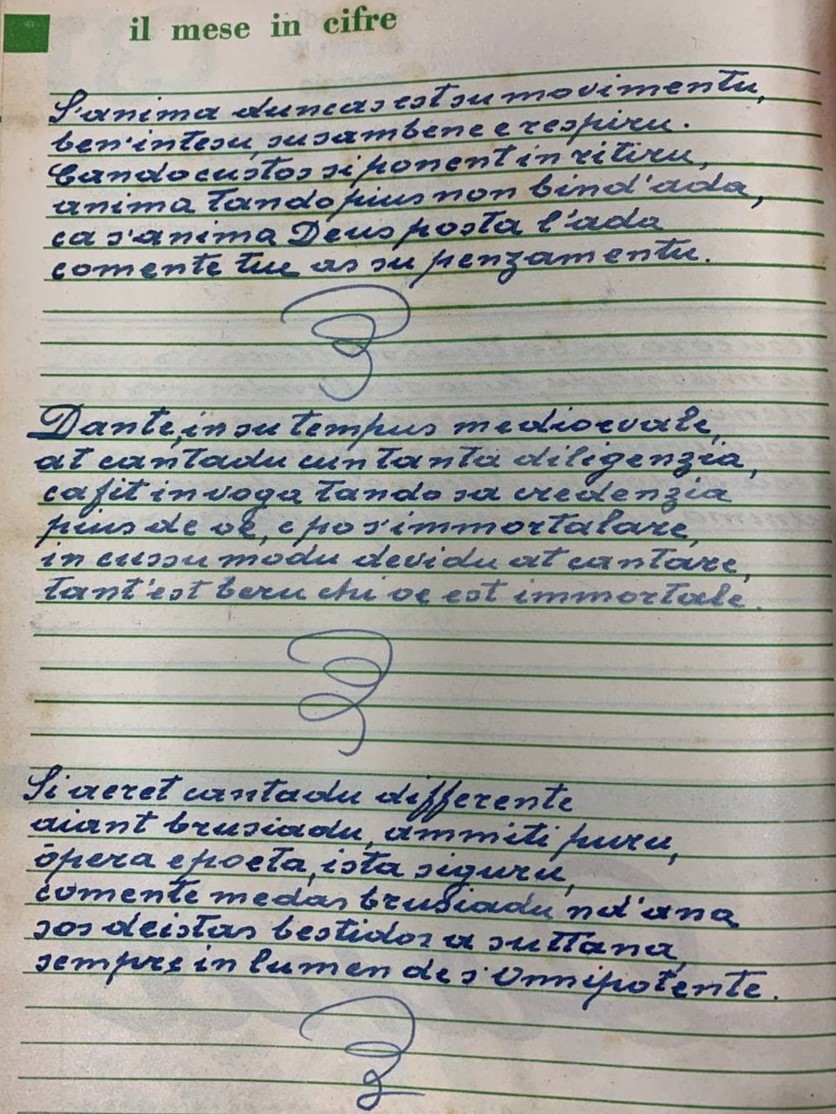 il mese in cifre
S'anima duncas est su movimentu,
ben'intesu, su sambene e respiru.
Cando custos si ponent in ritiru,
anima tando pius non bind'ada,
ca s'anima Deus posta l'ada
comente tue as su penzamentu.
Dante, in su tempus medioevale,
at cantadu cun tanta diligenzia,
ca fit in voga tando sa credenzia
pius de oe, e po s'immortalare,
in cussu modu devidu at cantare,
tant'est beru chi oe est immortale.
Si aeret cantadu differente
aiant brusiadu, ammiti puru,
òpera e poeta, ista siguru,
comente medas brusiadu nd'ana
sos deistas bestidos a suttana,
sempre in lumen de s'Onnipotente.